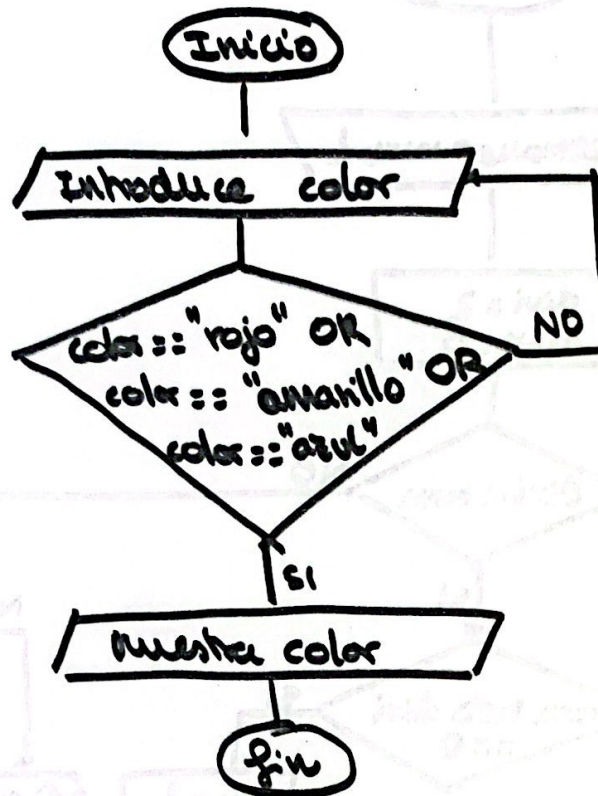 Inicio
Introduce color
color == "rojo" OR
color == "amarillo" OR
color == "azul"
NO
SI
muestra color
fin